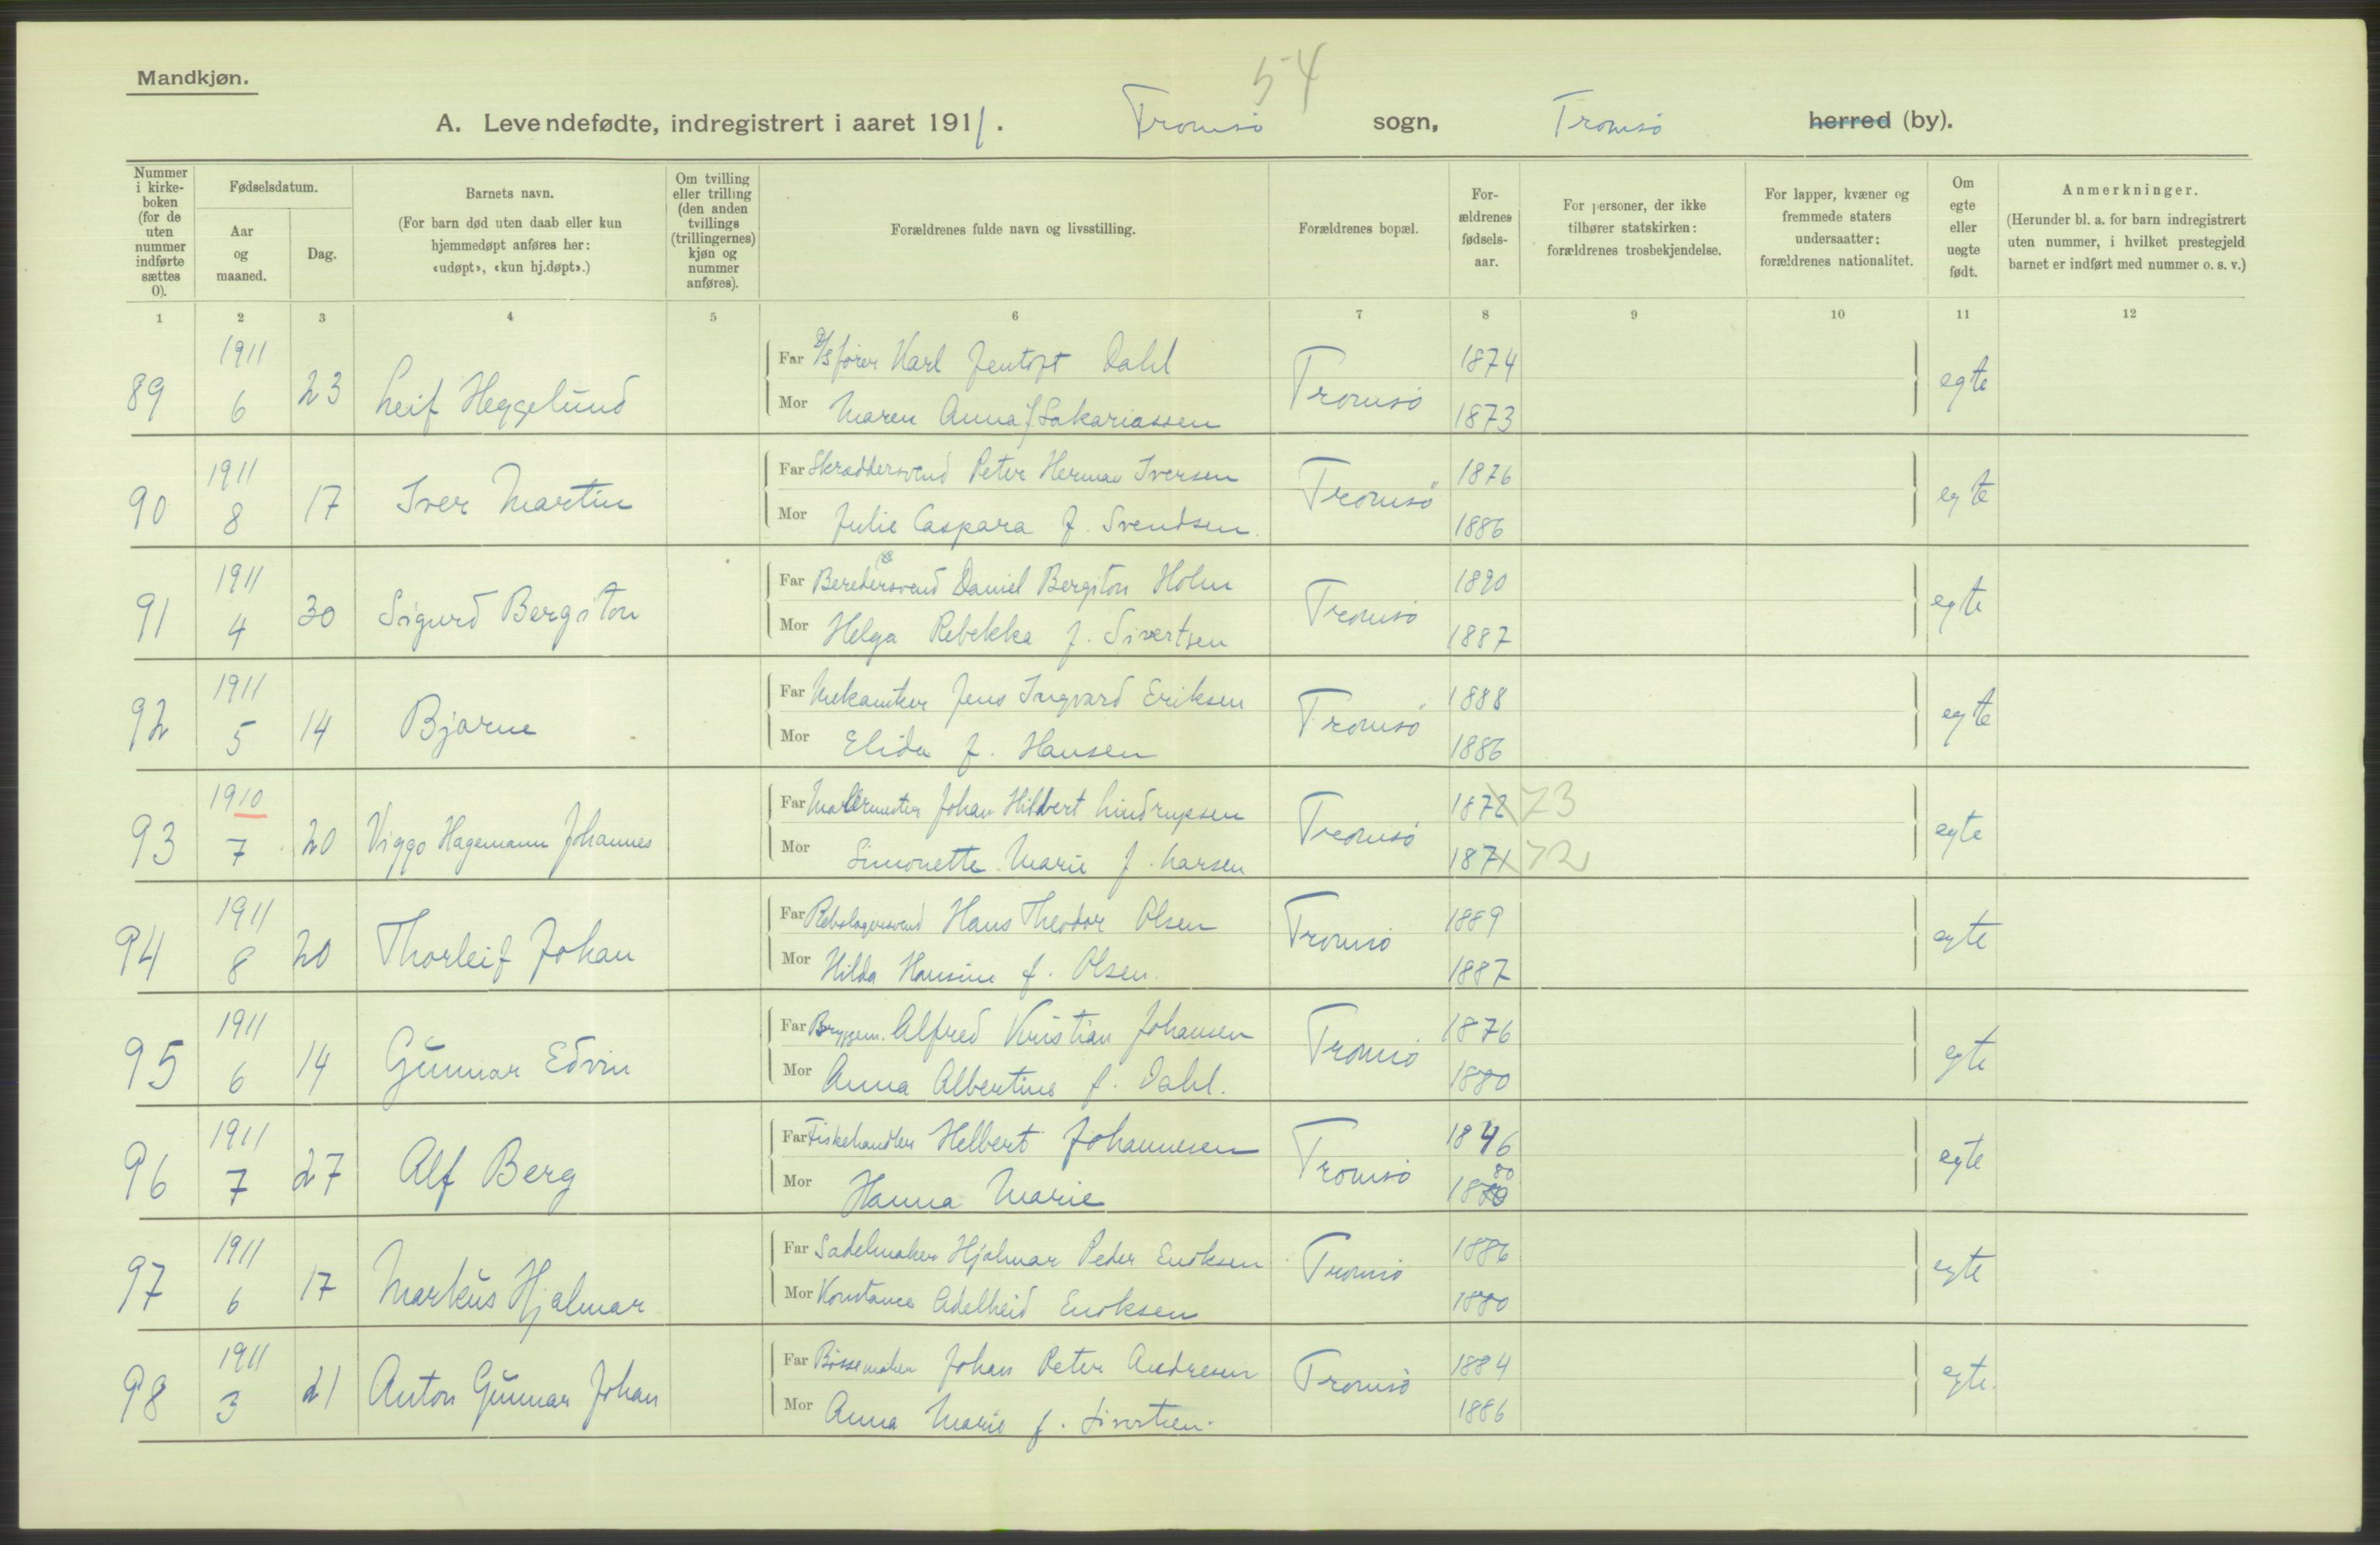 54
Mandkjøn.
A. Levendefødte, indregistrert i aaret 1911. Tromsø sogn, Tromsø herred (by).
Nummer i kirke- boken (for de uten nummer indførte sættes 0).
Fødselsdatum.
Aar og maaned.
Dag.
Barnets navn.
(For barn død uten daab eller kun hjemmedøpt anføres her: «udøpt», «kun hj.døpt».)
Om tvilling eller trilling (den anden tvillings (trillingernes) kjøn og nummer anføres).
Forældrenes fulde navn og livsstilling.
Forældrenes bopæl.
For- ældrenes fødsels- aar.
For personer, der ikke tilhører statskirken: forældrenes trosbekjendelse.
For lapper, kvæner og fremmede staters undersaatter: forældrenes nationalitet.
Om egte eller uegte født.
Anmerkninger.
(Herunder bl. a. for barn indregistrert uten nummer, i hvilket prestegjeld barnet er indført med nummer o. s. v.)
1 2 3 4 5 6 7 8 9 10 11 12
89 1911 6 23 Leif Heggelund Tromsø egte
Far D/S fører Karl Jentoft Dahl 1874
Mor Maren Anna f Sakariassen 1873
90 1911 8 17 Iver Martin Tromsø egte
Far Skraddersvend Peter Herman Iversen 1876
Mor Julie Caspara f. Svendsen 1886
91 1911 4 30 Sigurd Bergiton Tromsø egte
Far Beredersvend Daniel Bergiton Holm 1890
Mor Helga Rebekka f. Sivertsen 1887
92 1911 5 14 Bjarne Tromsø egte
Far Mekaniker Jens Ingvard Eriksen 1888
Mor Elida f. Hansen 1886
93 1910 7 20 Viggo Hagemann Johannes Tromsø egte
Far Malermester Johan Hilbert Lindrupsen 1872 73
Mor Simonette Marie f. Larsen 1871 72
94 1911 8 20 Thorleif Johan Tromsø egte
Far Rebslagersvend Hans Theodor Olsen 1889
Mor Hilda Hansine f. Olsen. 1887
95 1911 6 14 Gunnar Edvin Tromsø egte
Far Bryggem. Alfred Kristian Johansen 1876
Mor Anna Albertine f. Dahl. 1880
96 1911 7 27 Alf Berg Tromsø egte
Far Fiskehandler Helbert Johannesen 1846
Mor Hanna Marie 80
97 1911 6 17 Markus Hjalmar Tromsø egte
Far Sadelmaker Hjalmar Peder Enoksen 1886
Mor Konstance Adelheid Enoksen 1880
98 1911 3 21 Anton Gunnar Johan Tromsø egte.
Far Bøssemaker Johan Peter Andresen 1884
Mor Anna Marie f. Sivertsen. 1886